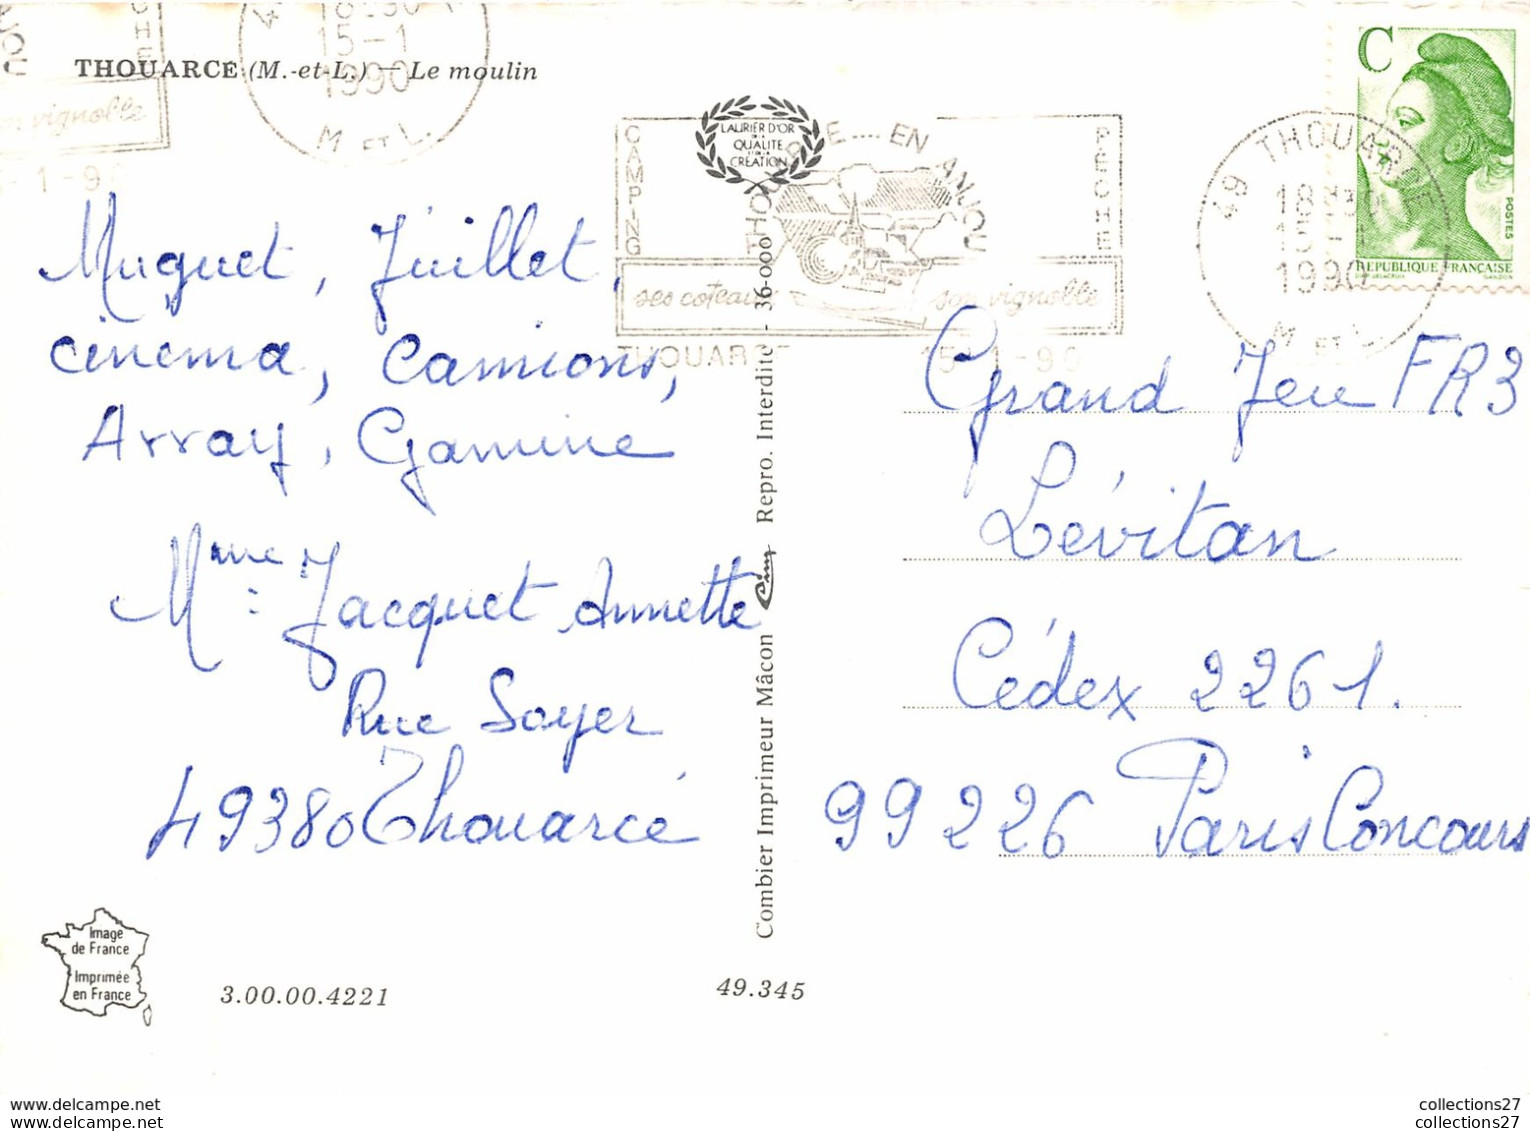 THOUARCE (M.-et-L.) — Le moulin
15-1
1990
M ET L.
son vignoble
LAURIER D'OR
DE LA
QUALITÉ
ET DE LA
CRÉATION
CAMPING
THOUARCE.... EN ANJOU
PÊCHE
ses coteaux
son vignoble
THOUARCE
15-1-90
49 THOUARCE
1990
M ET L
C
POSTES
REPUBLIQUE FRANÇAISE
Muguet, Juillet,
cinema, Camions,
Array, Gamine
Mme: Jacquet Annette
Rue Soyer
49380 Thouarcé
Grand Jeu FR3
Lévitan
Cédex 2261.
99226 Paris Concours
Combier Imprimeur Mâcon Cim Repro. Interdite - 36-000
Image
de France
Imprimée
en France
3.00.00.4221
49.345
www.delcampe.net
www.delcampe.net
collections27
collections27